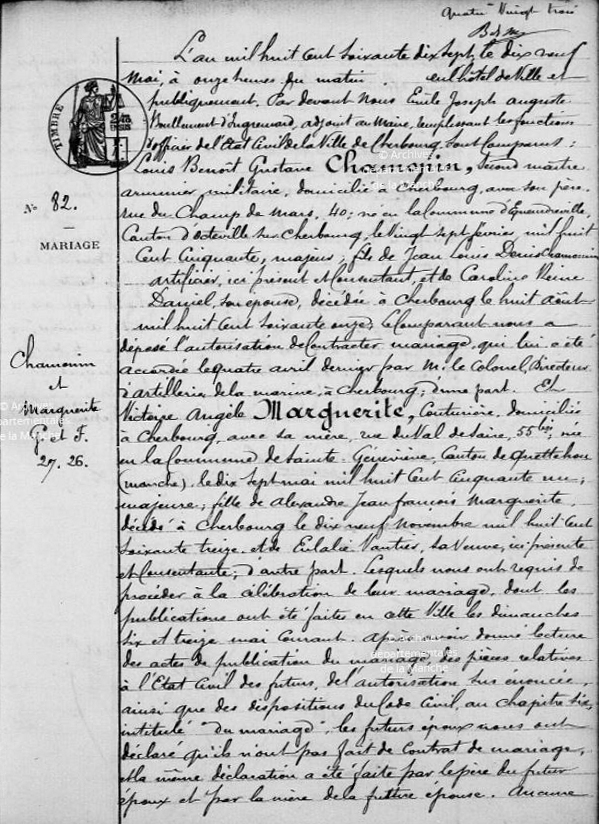 quatre Vingt trois
L'an mil huit cent soixante dix sept, le dix neuf
mai, à onze heures du matin en l'hôtel de Ville et
publiquement. Par devant Nous Emile Joseph Auguste
adjoint au Maire, remplissant les fonctions
d'officier de l'Etat Civil de la Ville de Cherbourg, sont comparus :
Louis Benoît Gustave Chamouin, second maître
armurier militaire, domicilié à Cherbourg, avec son père,
rue du Champ de Mars, 40; né en la Commune d'Equeurdreville,
Canton d'Octeville sur Cherbourg, le Vingt sept février mil huit
cent cinquante, majeur; fils de Jean Louis Denis Chamouin
artificier, ici présent et consentant, et de Caroline Reine
Daniel, son épouse, décédée à Cherbourg le huit août
mil huit cent soixante onze; le comparant nous a
déposé l'autorisation de contracter mariage, qui lui a été
accordée le quatre avril dernier par Mr. le Colonel, Directeur
d'artillerie de la marine, à Cherbourg; d'une part. Et
Victoire Angèle Marguerite, Couturière, domiciliée
à Cherbourg, avec sa mère, rue du Val de Saire, 55 bis, née
en la Commune de Sainte Geneviève, Canton de Quettehou
(manche), le dix sept mai mil huit cent cinquante un;
majeure; fille de Alexandre Jean François Marguerite,
décédé à Cherbourg le dix neuf Novembre mil huit cent
soixante treize, et de Eulalie Vautier, sa Veuve, ici présente
et consentante; d'autre part. Lesquels nous ont requis de
procéder à la célébration de leur mariage, dont les
publications ont été faites en cette Ville les dimanches
six et treize mai courant. Après avoir donné lecture
des actes de publication du mariage, des pièces relatives
à l'Etat Civil des futurs, de l'autorisation sus énoncée,
ainsi que des dispositions du Code Civil, au chapitre six,
intitulé "du mariage", les futurs époux nous ont
déclaré qu'ils n'ont pas fait de contrat de mariage,
et la même déclaration a été faite par le père du futur
époux et par la mère de la future épouse. Aucune
TIMBRE
No 82.
MARIAGE
Chamouin
et
Marguerite
G. et F.
27. 26.
© Archives
départementales
de la Manche
© Archives
départementales
de la Manche
© Archives
départementales
de la Manche